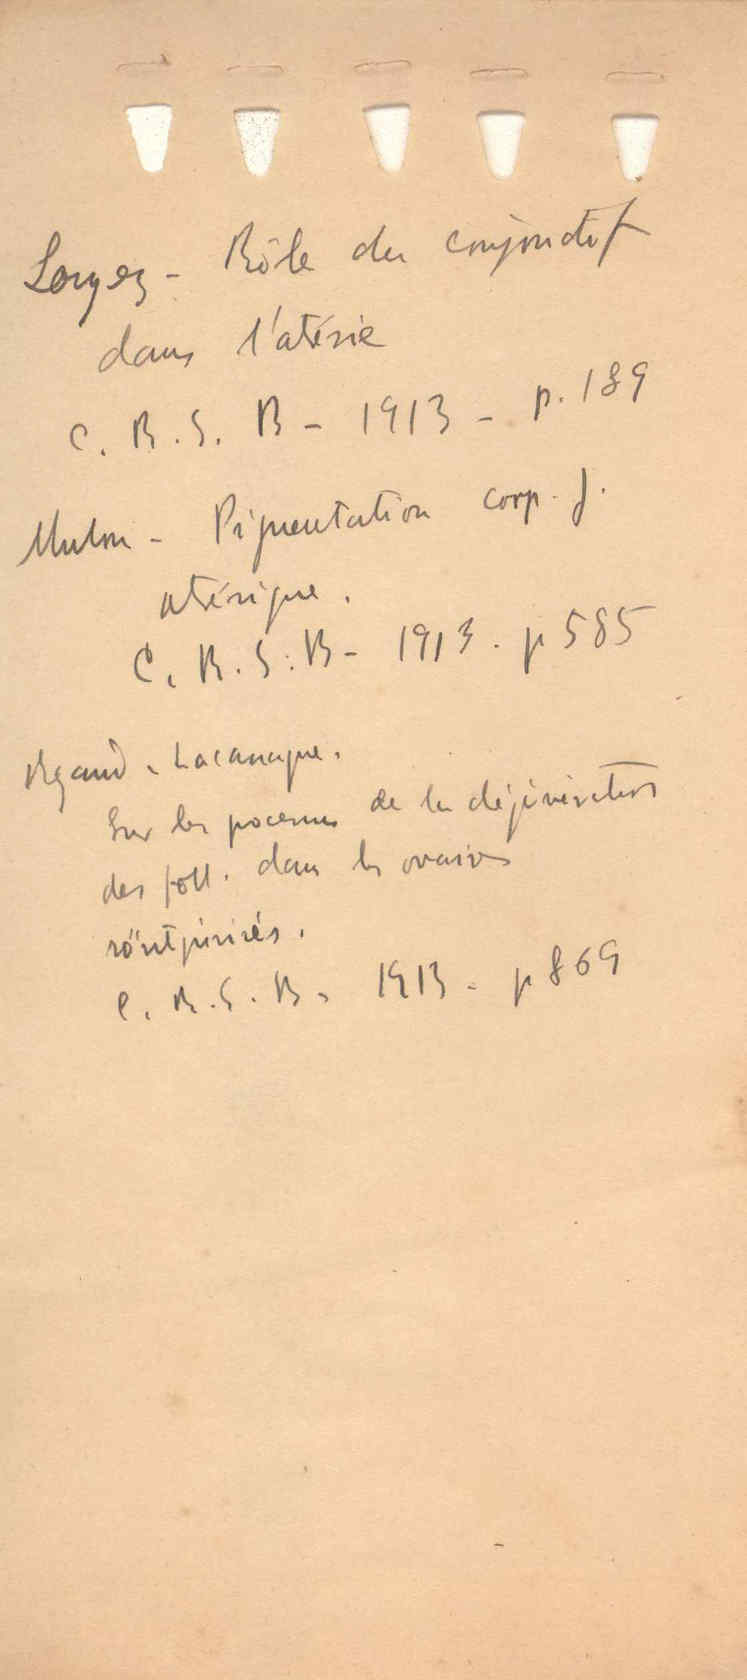 Loyez - Rôle du conjonctif
dans l'atésie
C. R. S. B - 1913 - p. 189
Mulon - Pigmentation corp. j.
atésique.
C. R. S. B - 1913. p 585
Regaud. Lacassagne.
Sur les processus de la dégénération
des foll. dans les ovaires
röntgénisés.
C. R. S. B. 1913 - p 869